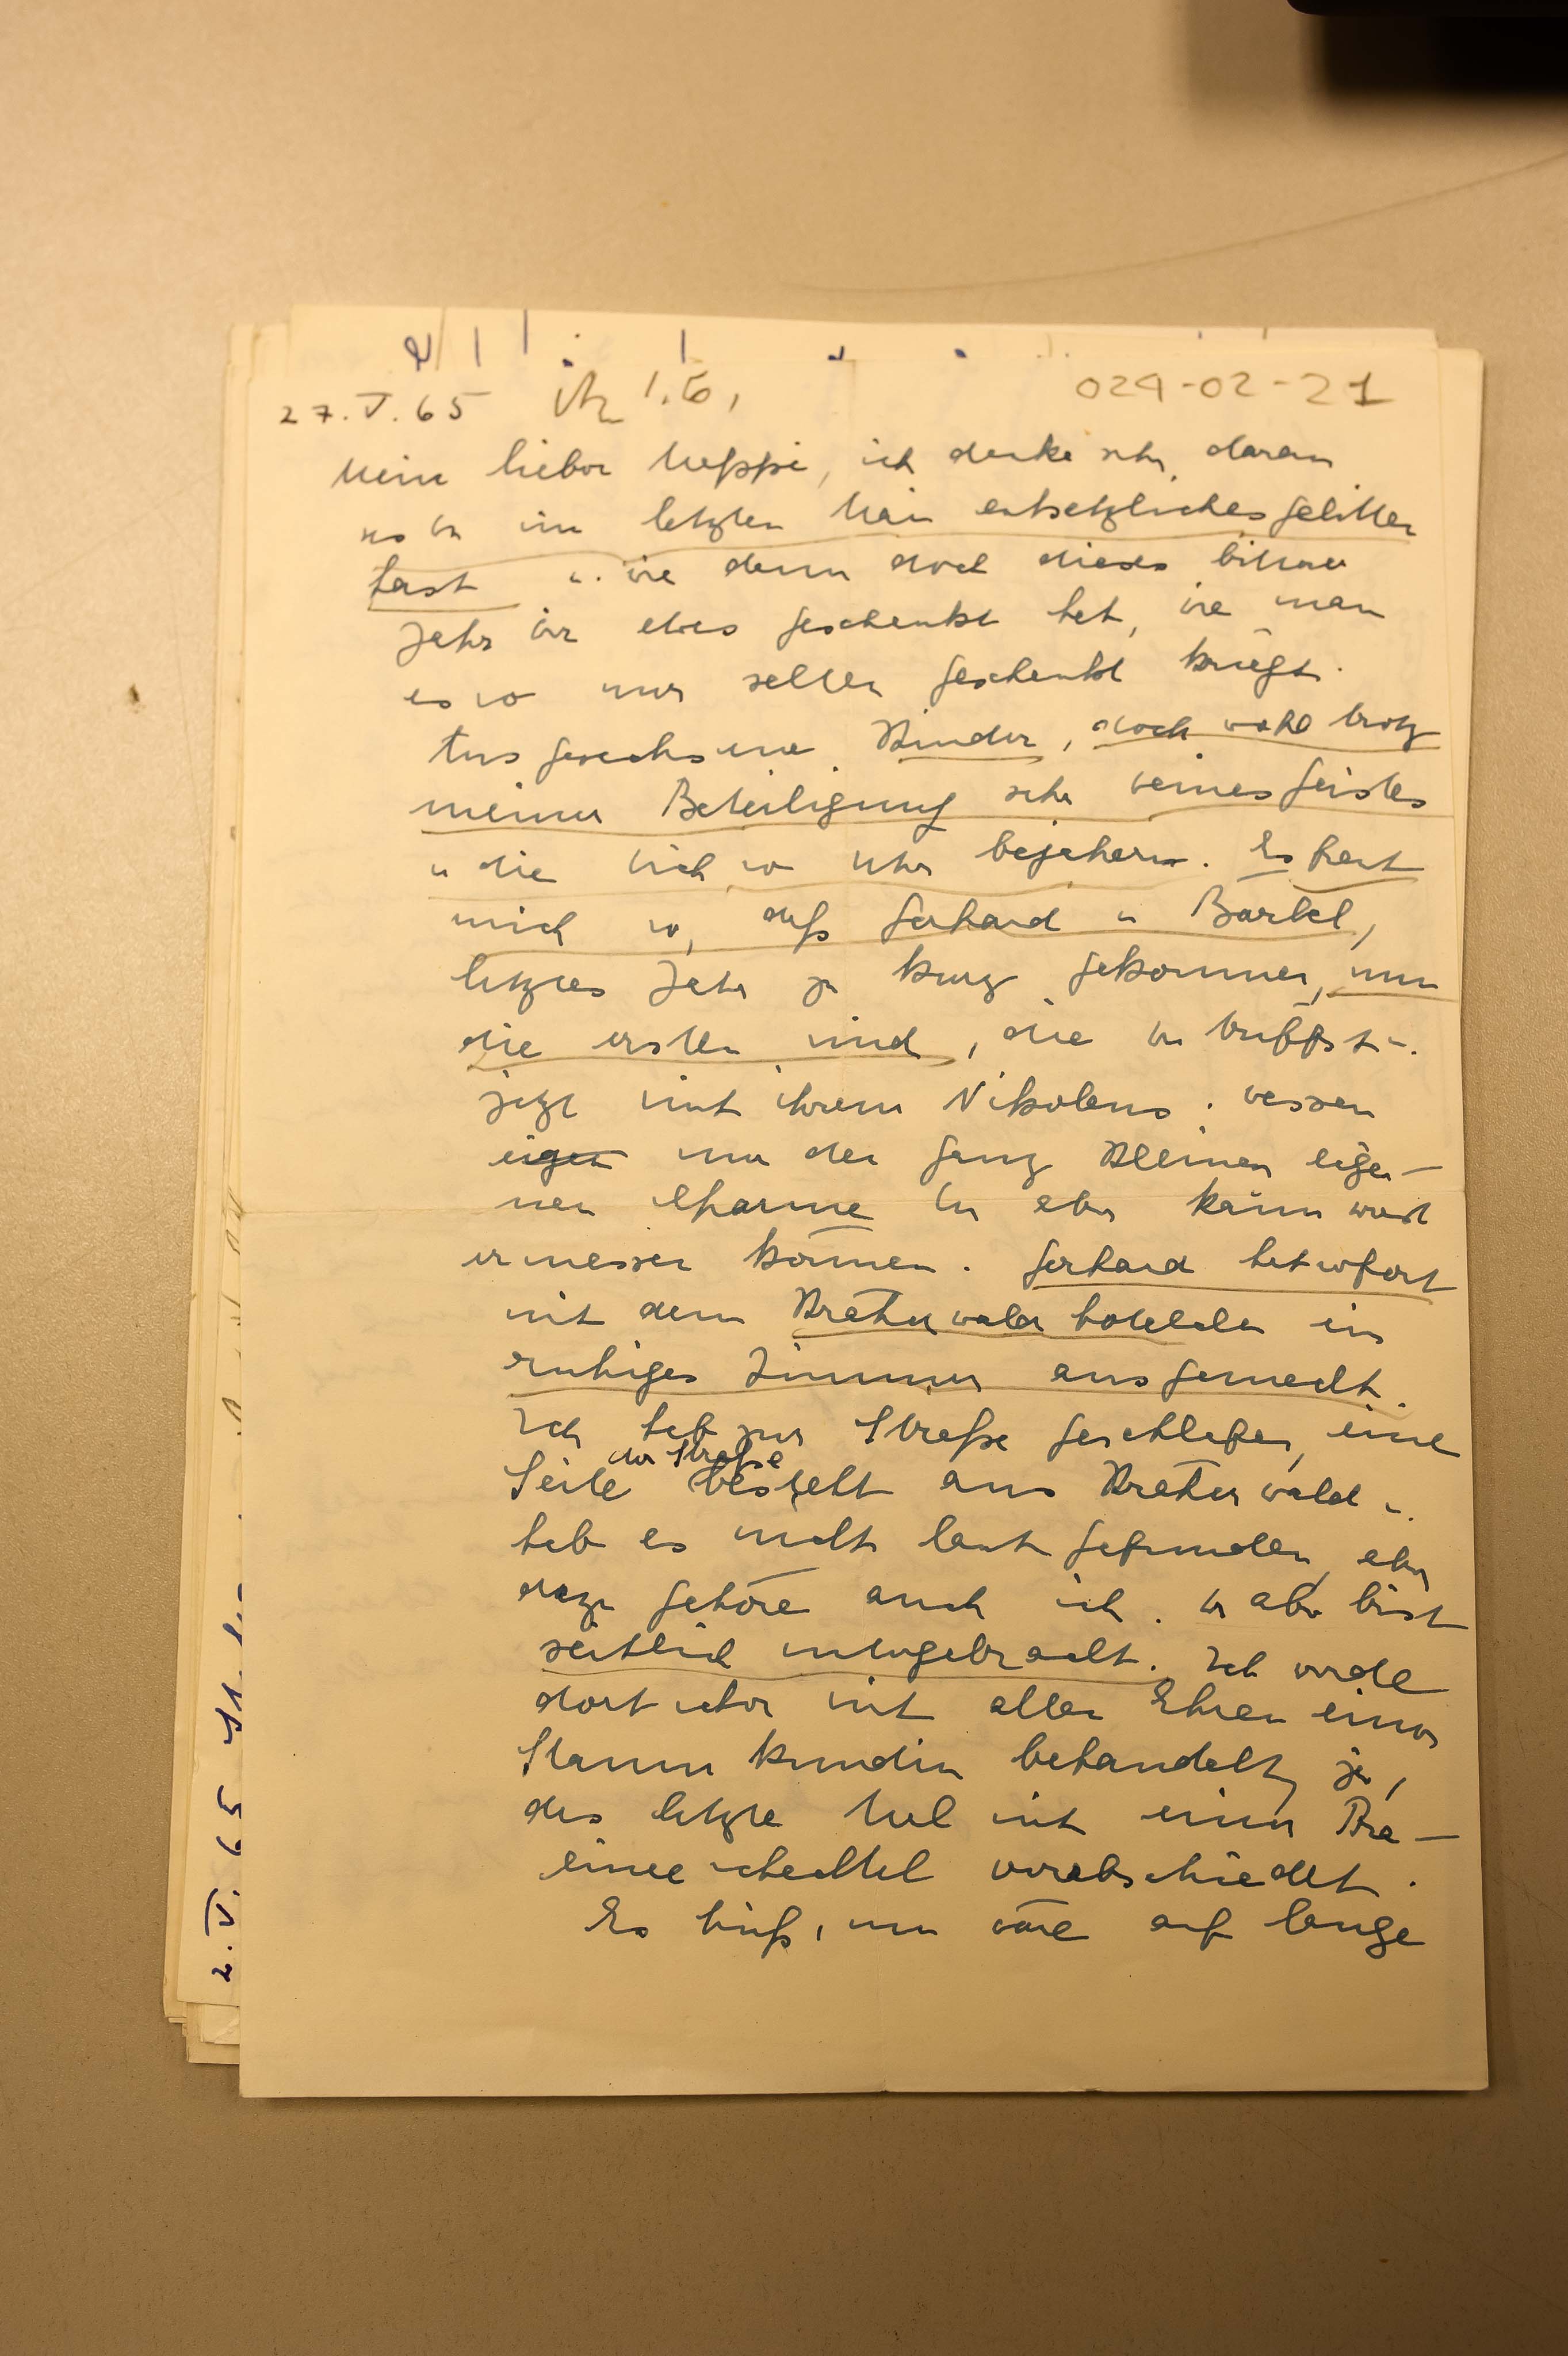 27.V.65 1.6,
029-02-21
Mein lieber , ich denke sehr daran
was Du im letzten Mai entsetzliches gelitten
hast u. wie dann doch dieses bittere
Jahr Dir etwas geschenkt hat, wie man
es so nur selten geschenkt kriegt.
Ausgewachsene Kinder, doch wohl trotz
meiner Beteiligung sehr Deines Geistes
u die Dich so sehr bejahen. Es freut
mich so, daß Gerhard u Bärbel,
letztes Jahr zu kurz gekommen, nun
die ersten sind, die Du triffst u.
jetzt mit ihrem Nikolaus. Dessen
eigen nur den ganz Kleinen eige-
nen Charme Du aber kaum wirst
ermessen können. Gerhard hat sofort
mit dem waldhotel ein
ruhiges Zimmer ausgemacht.
Ich hab zur Straße geschlafen, eine
Seite der Straße besteht aus wald u.
hab es nicht laut gefunden, aber
dazu gehöre auch ich. Du aber bist
seitlich untergebracht. Ich werde
dort schon mit allen Ehren einer
Stammkundin behandelt, ja,
das letzte Mal mit einer Pra-
lineeschachtel verabschiedet.
Es hieß, man wäre auf lange
2.V.65